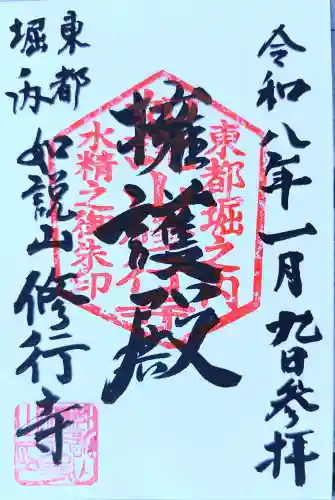 令和八年一月九日参拝
擁護殿
東都堀之内
水精之御朱印
東都
堀ノ内
如説山修行寺